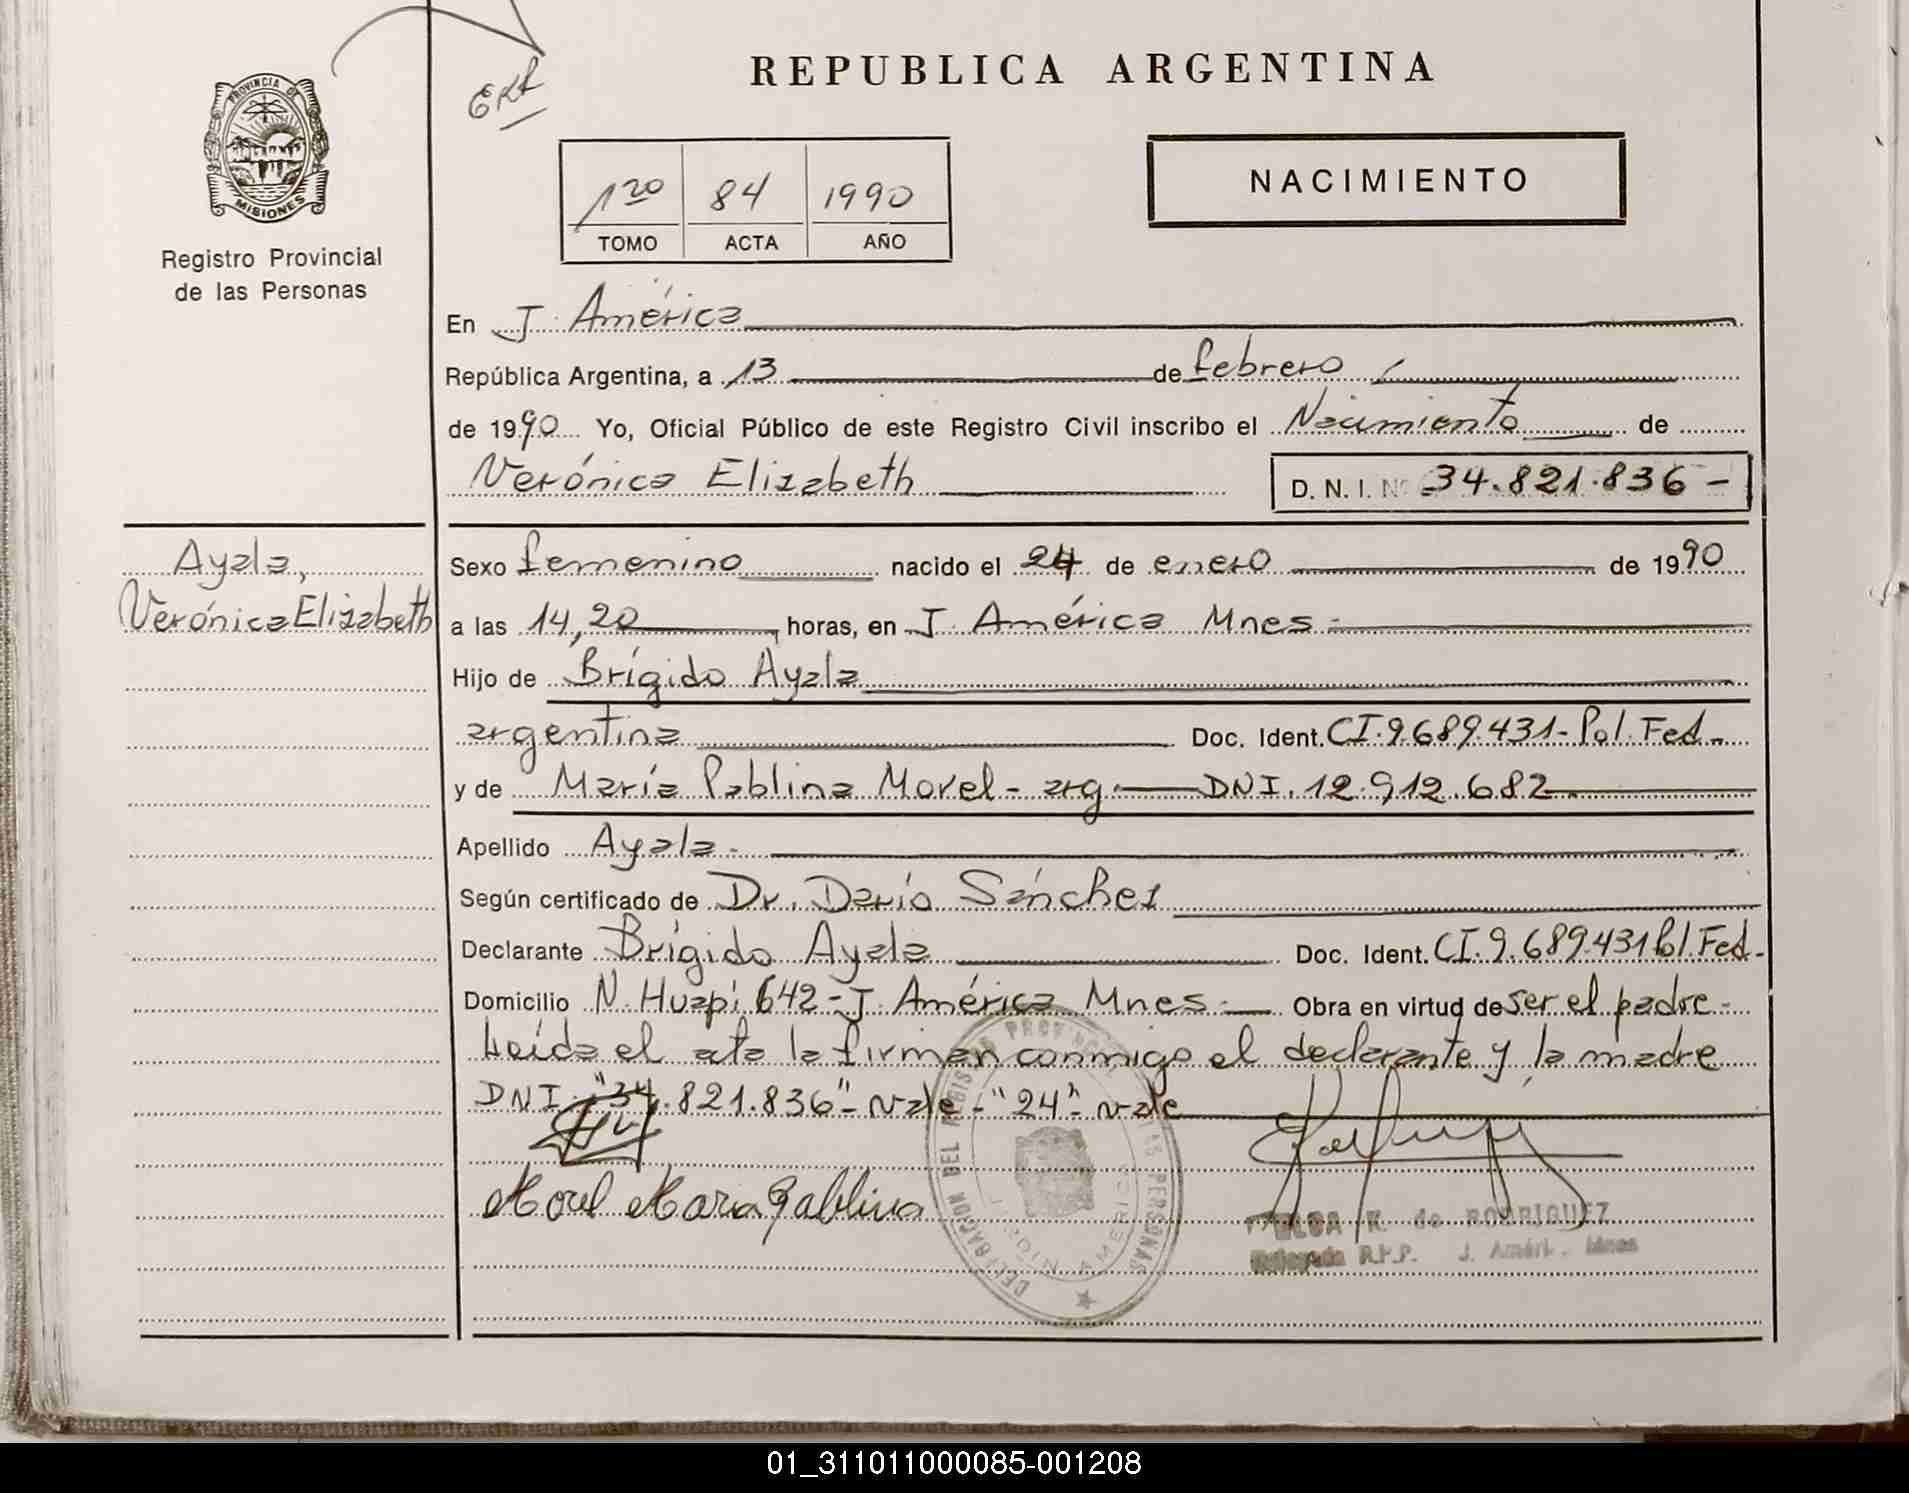 REPUBLICA ARGENTINA
PROVINCIA DE
MISIONES
Registro Provincial
de las Personas
1ro 84 1990
TOMO ACTA AÑO
NACIMIENTO
En J. América
República Argentina, a 13 de febrero
de 1990 Yo, Oficial Público de este Registro Civil inscribo el Nacimiento de
Verónica Elizabeth D. N. I. Nº 34.821.836-
Ayala,
Verónica Elizabeth
Sexo femenino nacido el 24 de enero de 1990
a las 14,20 horas, en J. América Mnes.
Hijo de Brígido Ayala
argentina Doc. Ident. CI.9.689.431- Pol. Fed.
y de María Pablina Morel - arg. DNI. 12.912.682
Apellido Ayala.
Según certificado de Dr. Darío Sánchez
Declarante Brígido Ayala Doc. Ident. CI.9.689.431 Pol. Fed.
Domicilio N. Huapi 642 - J. América Mnes. Obra en virtud de ser el padre.
Leída el ata la firman conmigo el declarante y la madre
DNI. "34.821.836" - vale - "24" - vale
Morel Maria Pablina
DELEGACION DEL REGISTRO PROVINCIAL DE LAS PERSONAS
JARDIN AMERICA
ELSA K. de RODRIGUEZ
Delegada R.P.P. J. Améri. Mnes
01_311011000085-001208